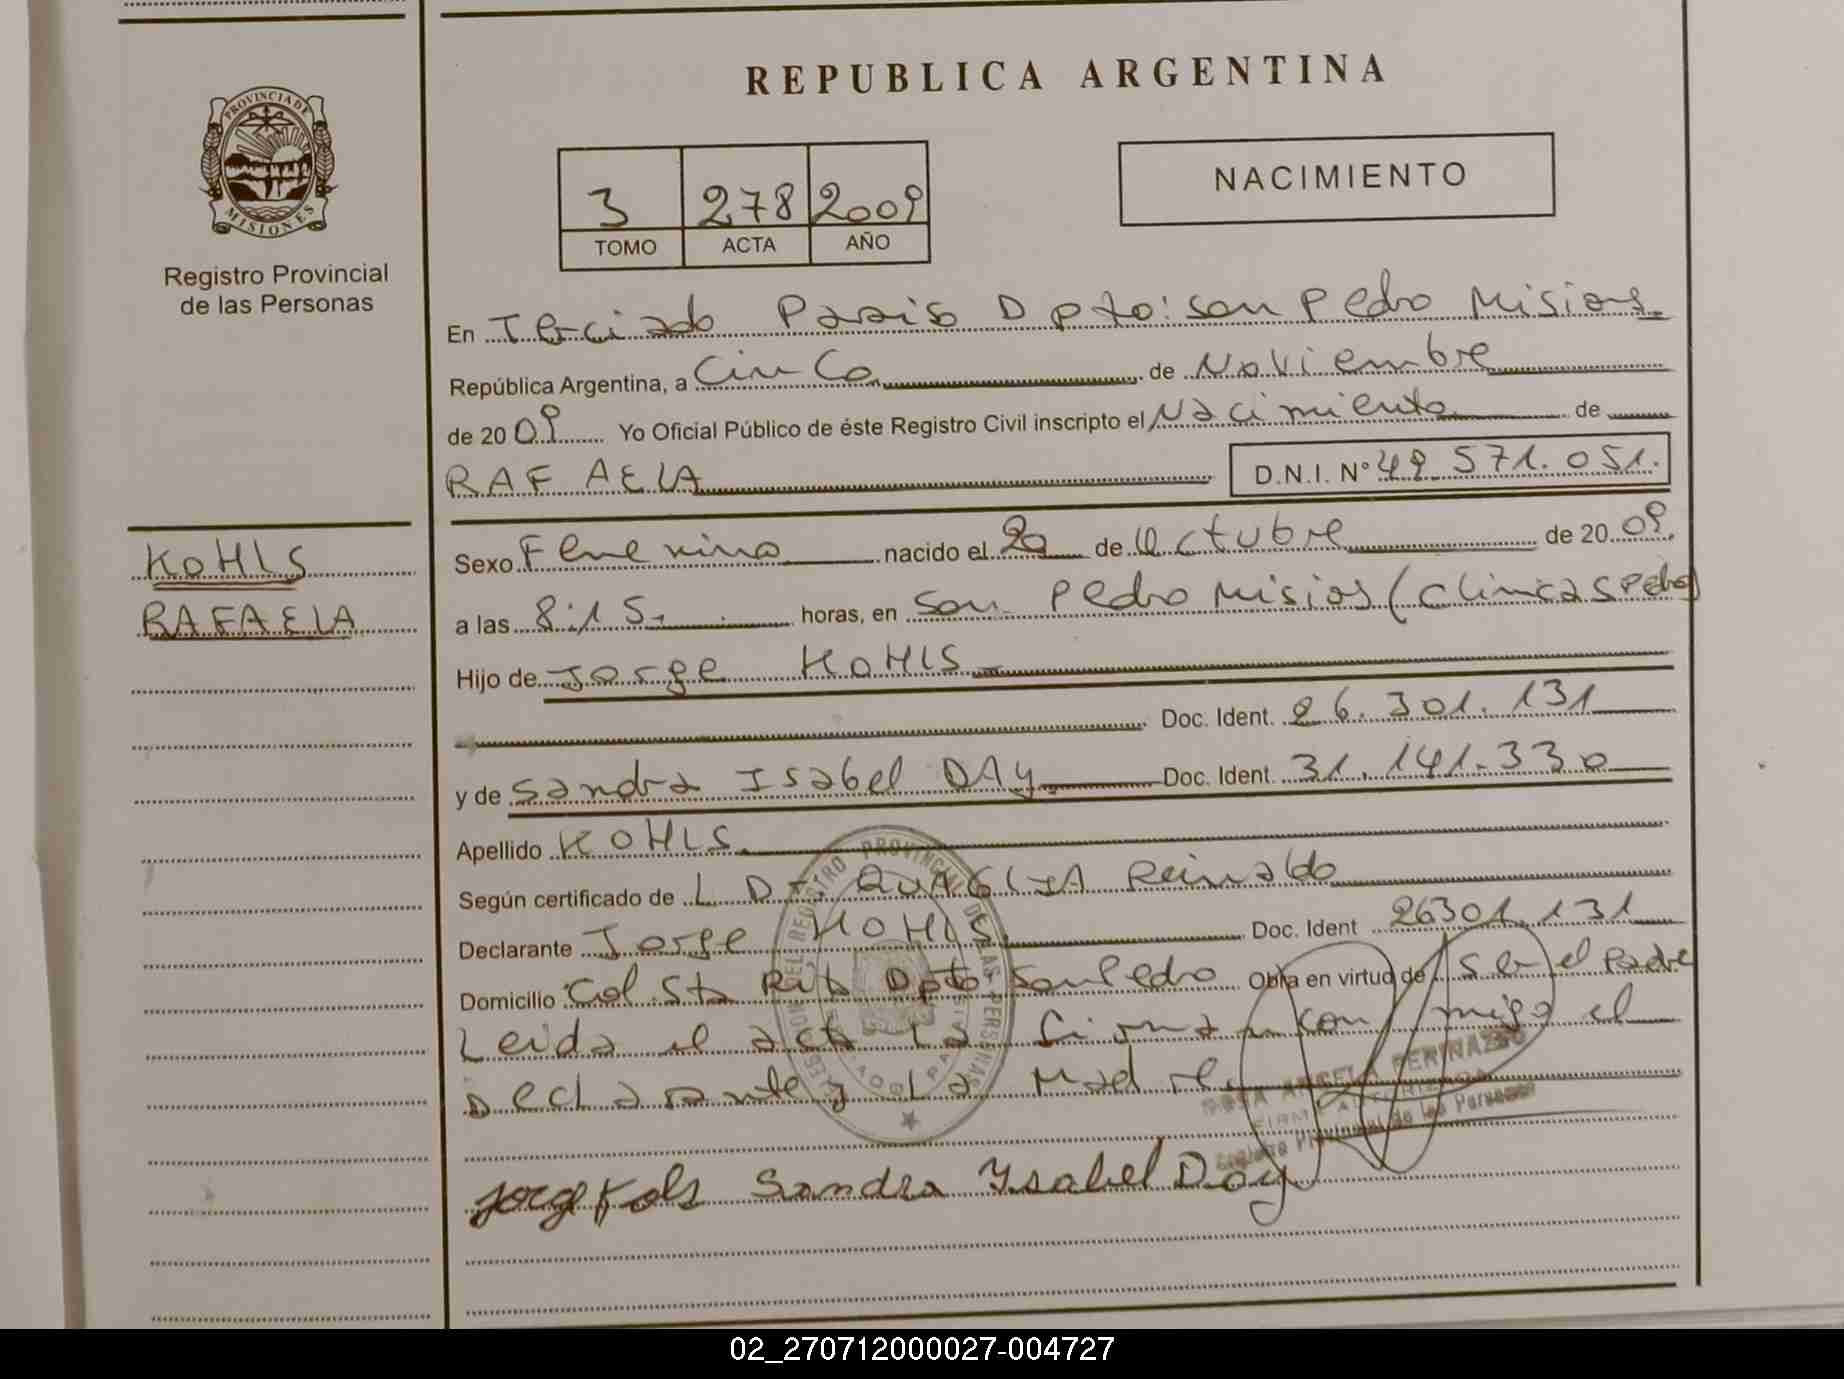 REPUBLICA ARGENTINA
PROVINCIA DE
MISIONES
Registro Provincial
de las Personas
3 278 2009
TOMO ACTA AÑO
NACIMIENTO
En Terciado Paraiso Dpto: San Pedro Misiones
República Argentina, a Cinco de Noviembre
de 2009 Yo Oficial Público de éste Registro Civil inscripto el Nacimiento de
RAFAELA D.N.I. Nº 49.571.051.
KOHLS
RAFAELA
Sexo Femenino nacido el 20 de Octubre de 2009.
a las 8:15. horas, en San Pedro Misiones (Clinica S Pedro)
Hijo de Jorge KOHLS
Doc. Ident. 26.301.131
y de Sandra Isabel DAY Doc. Ident. 31.141.330
Apellido KOHLS.
Según certificado de L D QUAGLIA Reinaldo
Declarante Jorge KOHLS. Doc. Ident 26301.131
Domicilio Col Sta Rita Dpto San Pedro Obra en virtud de ser el Padre
Leida el acta la firman conmigo el
Declarante y La Madre.
ROSA ANGELA PERINAZZO
FIRMA AUTORIZADA
Registro Provincial de las Personas
Jorge Kols Sandra Ysabel Day
02_270712000027-004727